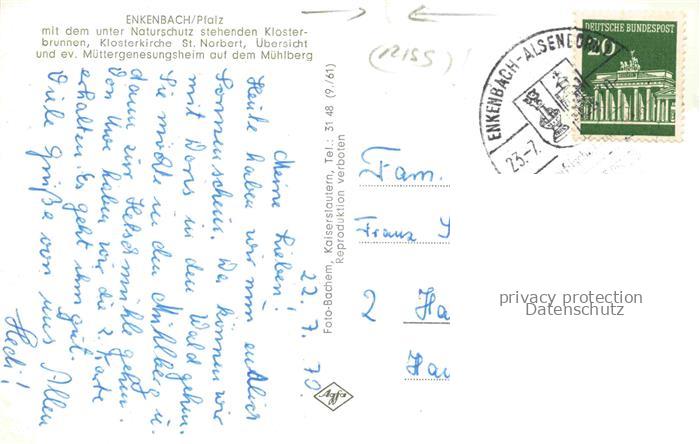 ENKENBACH/Pfalz
mit dem unter Naturschutz stehenden Kloster-
brunnen, Klosterkirche St. Norbert, Übersicht
und ev. Müttergenesungsheim auf dem Mühlberg
22. 7. 70.
Meine Lieben!
Heute haben wir nun endlich
Sonnenschein. Da können wir
mit Doris in den Wald gehen.
Sie möchte in den Mühlberg u.
dann zur Hetschmühle gehen.
Von Uwe haben wir die 2. Karte
erhalten. Es geht ihm gut.
Viele Grüße von uns Allen
Hedi!
Foto-Bachem, Kaiserslautern, Tel.: 31 48 (9./61)
Reproduktion verboten
Agfa
(12155)
ENKENBACH-ALSENBORN
23.-7.
DEUTSCHE BUNDESPOST
20
Fam.
Franz
2 Ha
Ha
privacy protection
Datenschutz